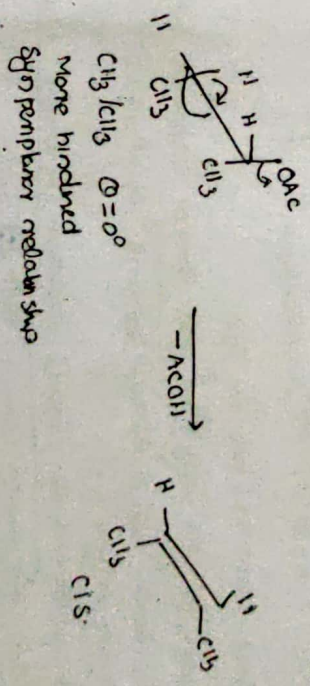 H
H
H
OAC
CH3
CH3
CH3/CH3 Θ=0°
More hindred
Syn periplanar relationship
-ACOH
H
H
CH3
CH3
Cis.